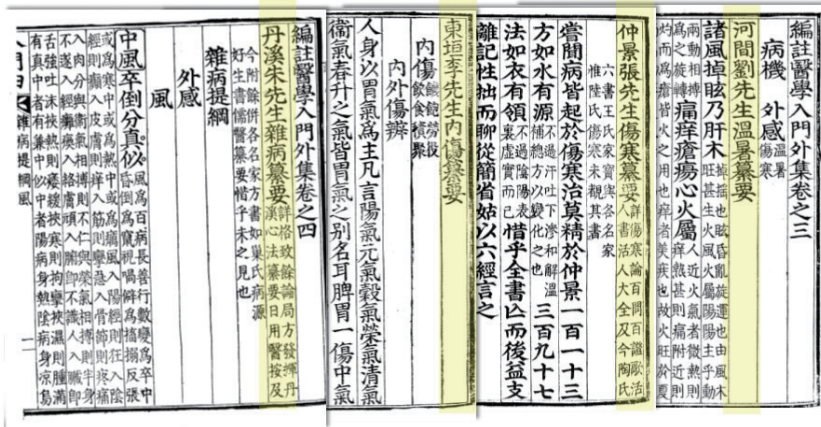 編註醫學入門外集卷之三
病機 外感 溫暑 傷寒
河間劉先生溫暑纂要
諸風掉眩乃肝木 掉搖也眩昏亂旋運也由風木
旺甚生火風火屬陽陽主乎動
兩動相搏則
為之旋轉 痛痒瘡瘍心火屬 人近火氣者微熱則
痒熱甚則痛附近則
灼而為瘡皆火之用也痒者美疾也故火旺於夏
仲景張先生傷寒纂要 詳傷寒論百問百證歌活
人書活人大全及今陶氏
六書王氏家寶與各名家
惟陸氏傷寒未覩其書
嘗聞病皆起於傷寒治莫精於仲景一百一十三
方如水有源 不過汗吐下滲和解溫
補總方以變化之也 三百九十七
法如衣有領 不過陰陽表
裏虛實而已 惜乎全書亡而後益支
離記性拙而聊從簡省姑以六經言之
東垣李先生內傷纂要
內傷 飢飽勞役
飲食積聚
內外傷辨
人身以胃氣為主凡言陽氣元氣穀氣榮氣清氣
衞氣春升之氣皆胃氣之別名耳脾胃一傷中氣
編註醫學入門外集卷之四
丹溪朱先生雜病纂要 詳格致餘論局方發揮丹
溪心法纂要日用醫按及
今附餘併各名家方書如巢氏病源
好生書儒醫纂要惜乎未之見也
雜病提綱
外感
風
中風卒倒分真似 風為百病長善行數變為卒中
昏倒為竄視喎僻為搐搦反張
或為寒中或為熱中或為癘風入陽經則狂入陰
經則癲入皮膚則痒入筋則攣急入骨節則疼痛
入肉分與衞氣相搏則不仁與榮氣相搏則半身
不遂入經癱瘓入絡膚頑入腑即不識人入臟即
舌強吐沫挾熱則痿緩挾寒則拘攣挾濕則腫滿
有真中者有兼中似中者陽病身熱陰病身涼
入門四 雜病提綱風 一